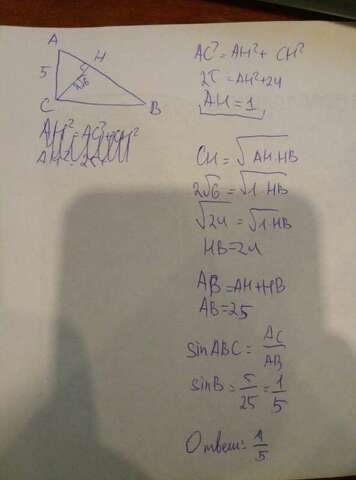 A
H
5
2√6
C
B
AC² = AH² + CH²
25 = AH² + 24
AH = 1
CH = √AH·HB
2√6 = √1·HB
√24 = √1·HB
HB = 24
AB = AH + HB
AB = 25
sin ABC = AC/AB
sin B = 5/25 = 1/5
Ответ: 1/5